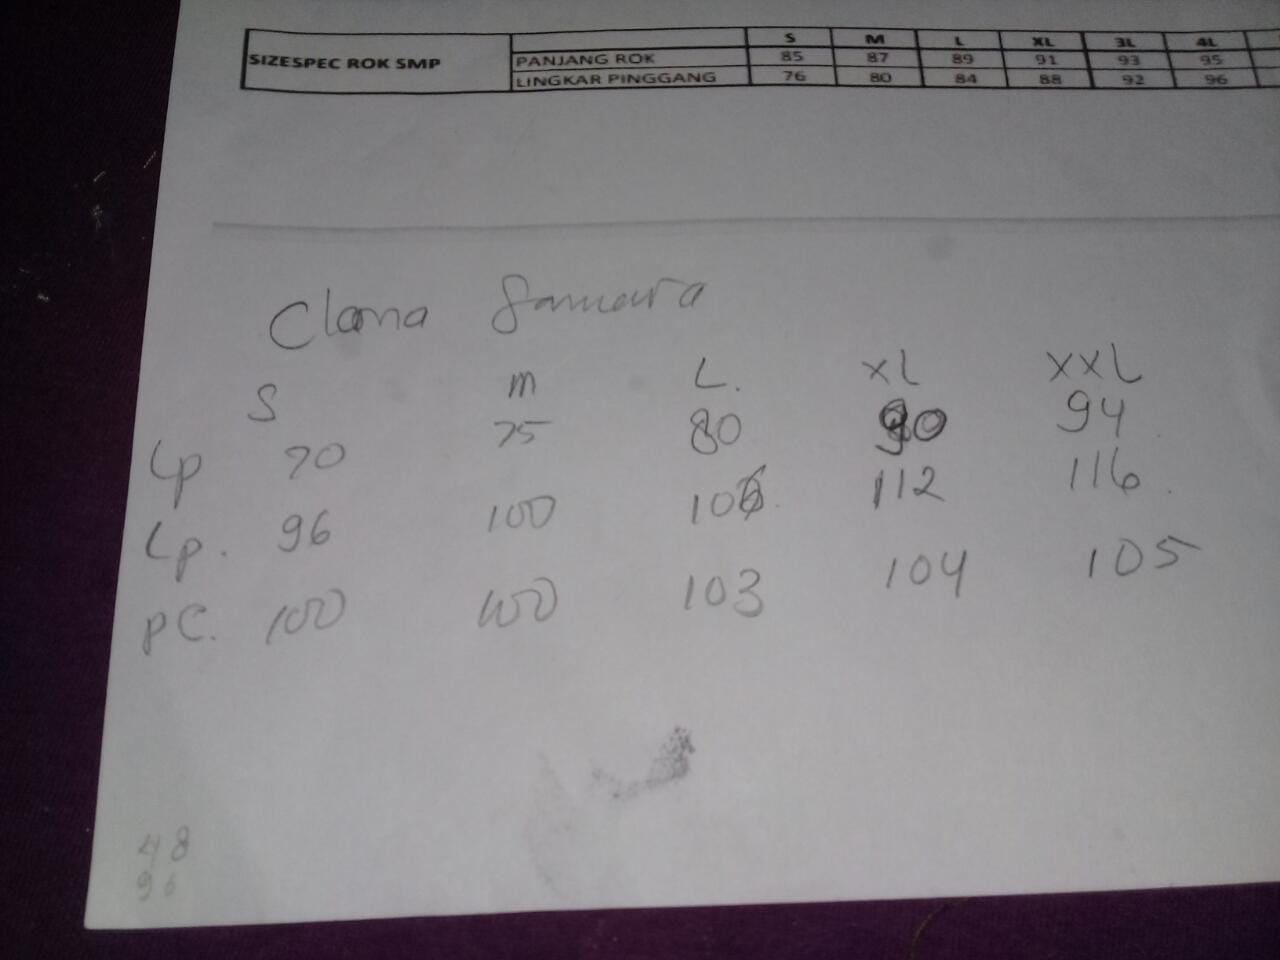 S M L XL 3L 4L
SIZESPEC ROK SMP
PANJANG ROK 85 87 89 91 93 95
LINGKAR PINGGANG 76 80 84 88 92 96
Clana Samara
S m L. XL XXL
Lp 70 75 80 90 94
Lp. 96 100 106 112 116
PC. 100 100 103 104 105
48
96